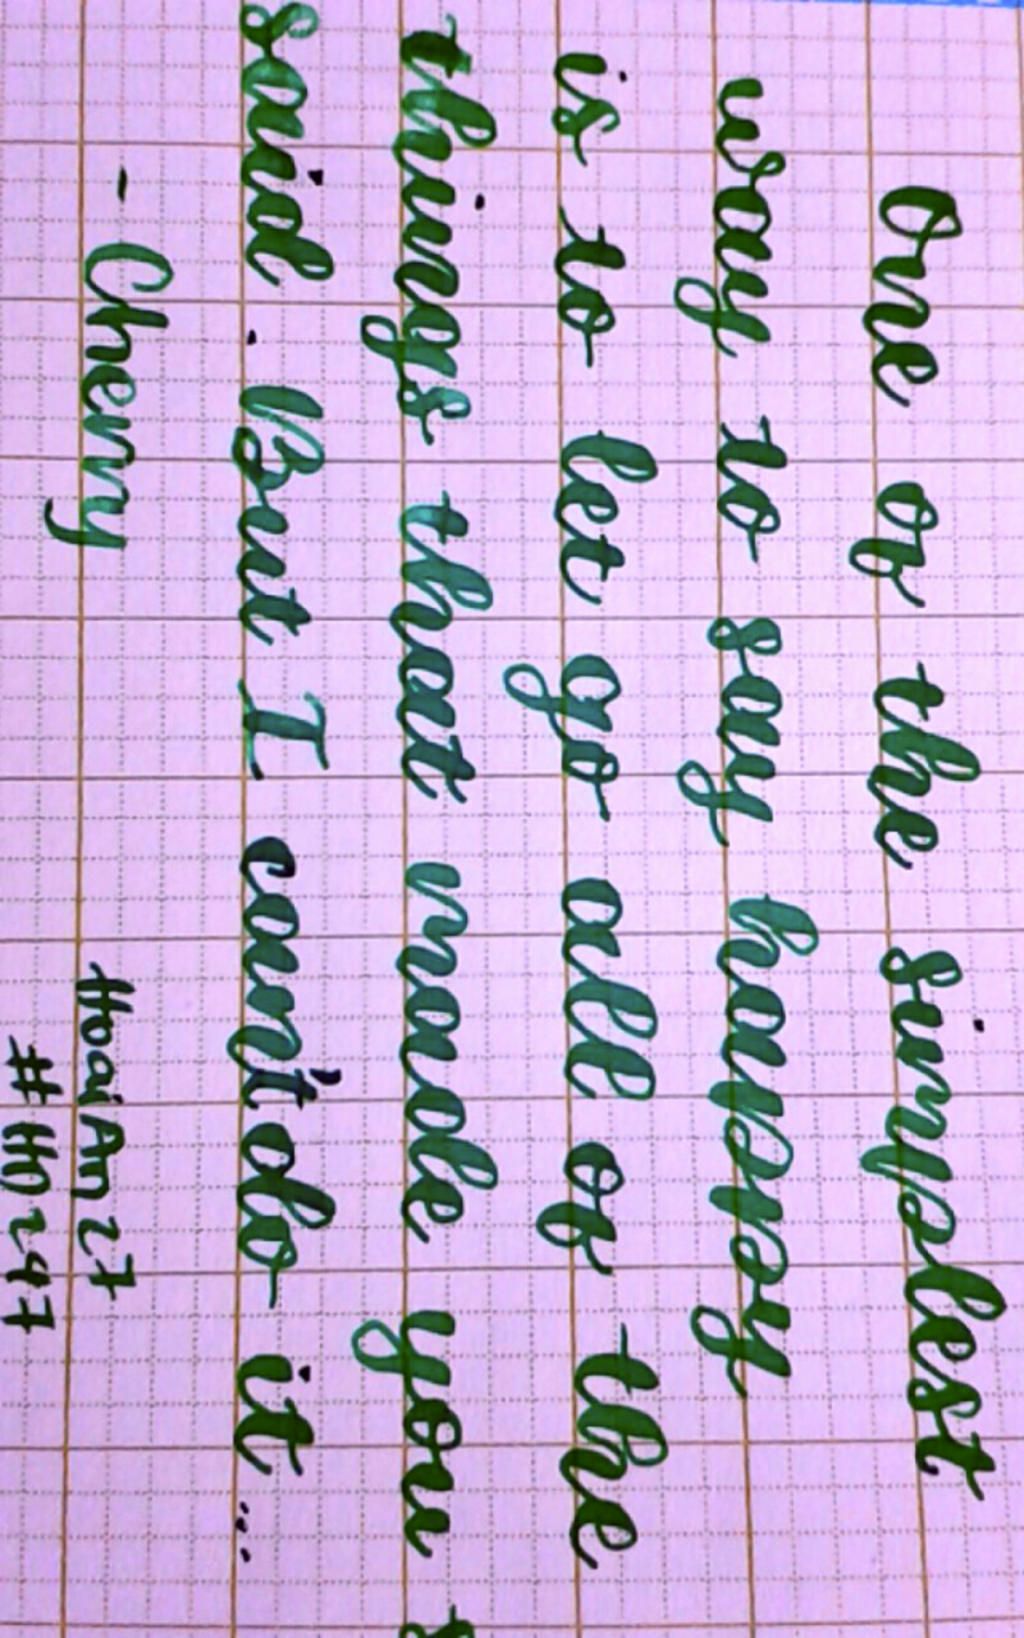 One of the simplest
way to say happy
is to let go all of the
things that made you
said . But I can't do it...
- Cherry
HoaiAn27